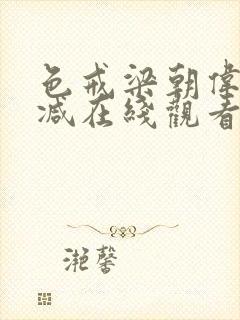 色戒梁朝偉
减在綫觀看
滟馨